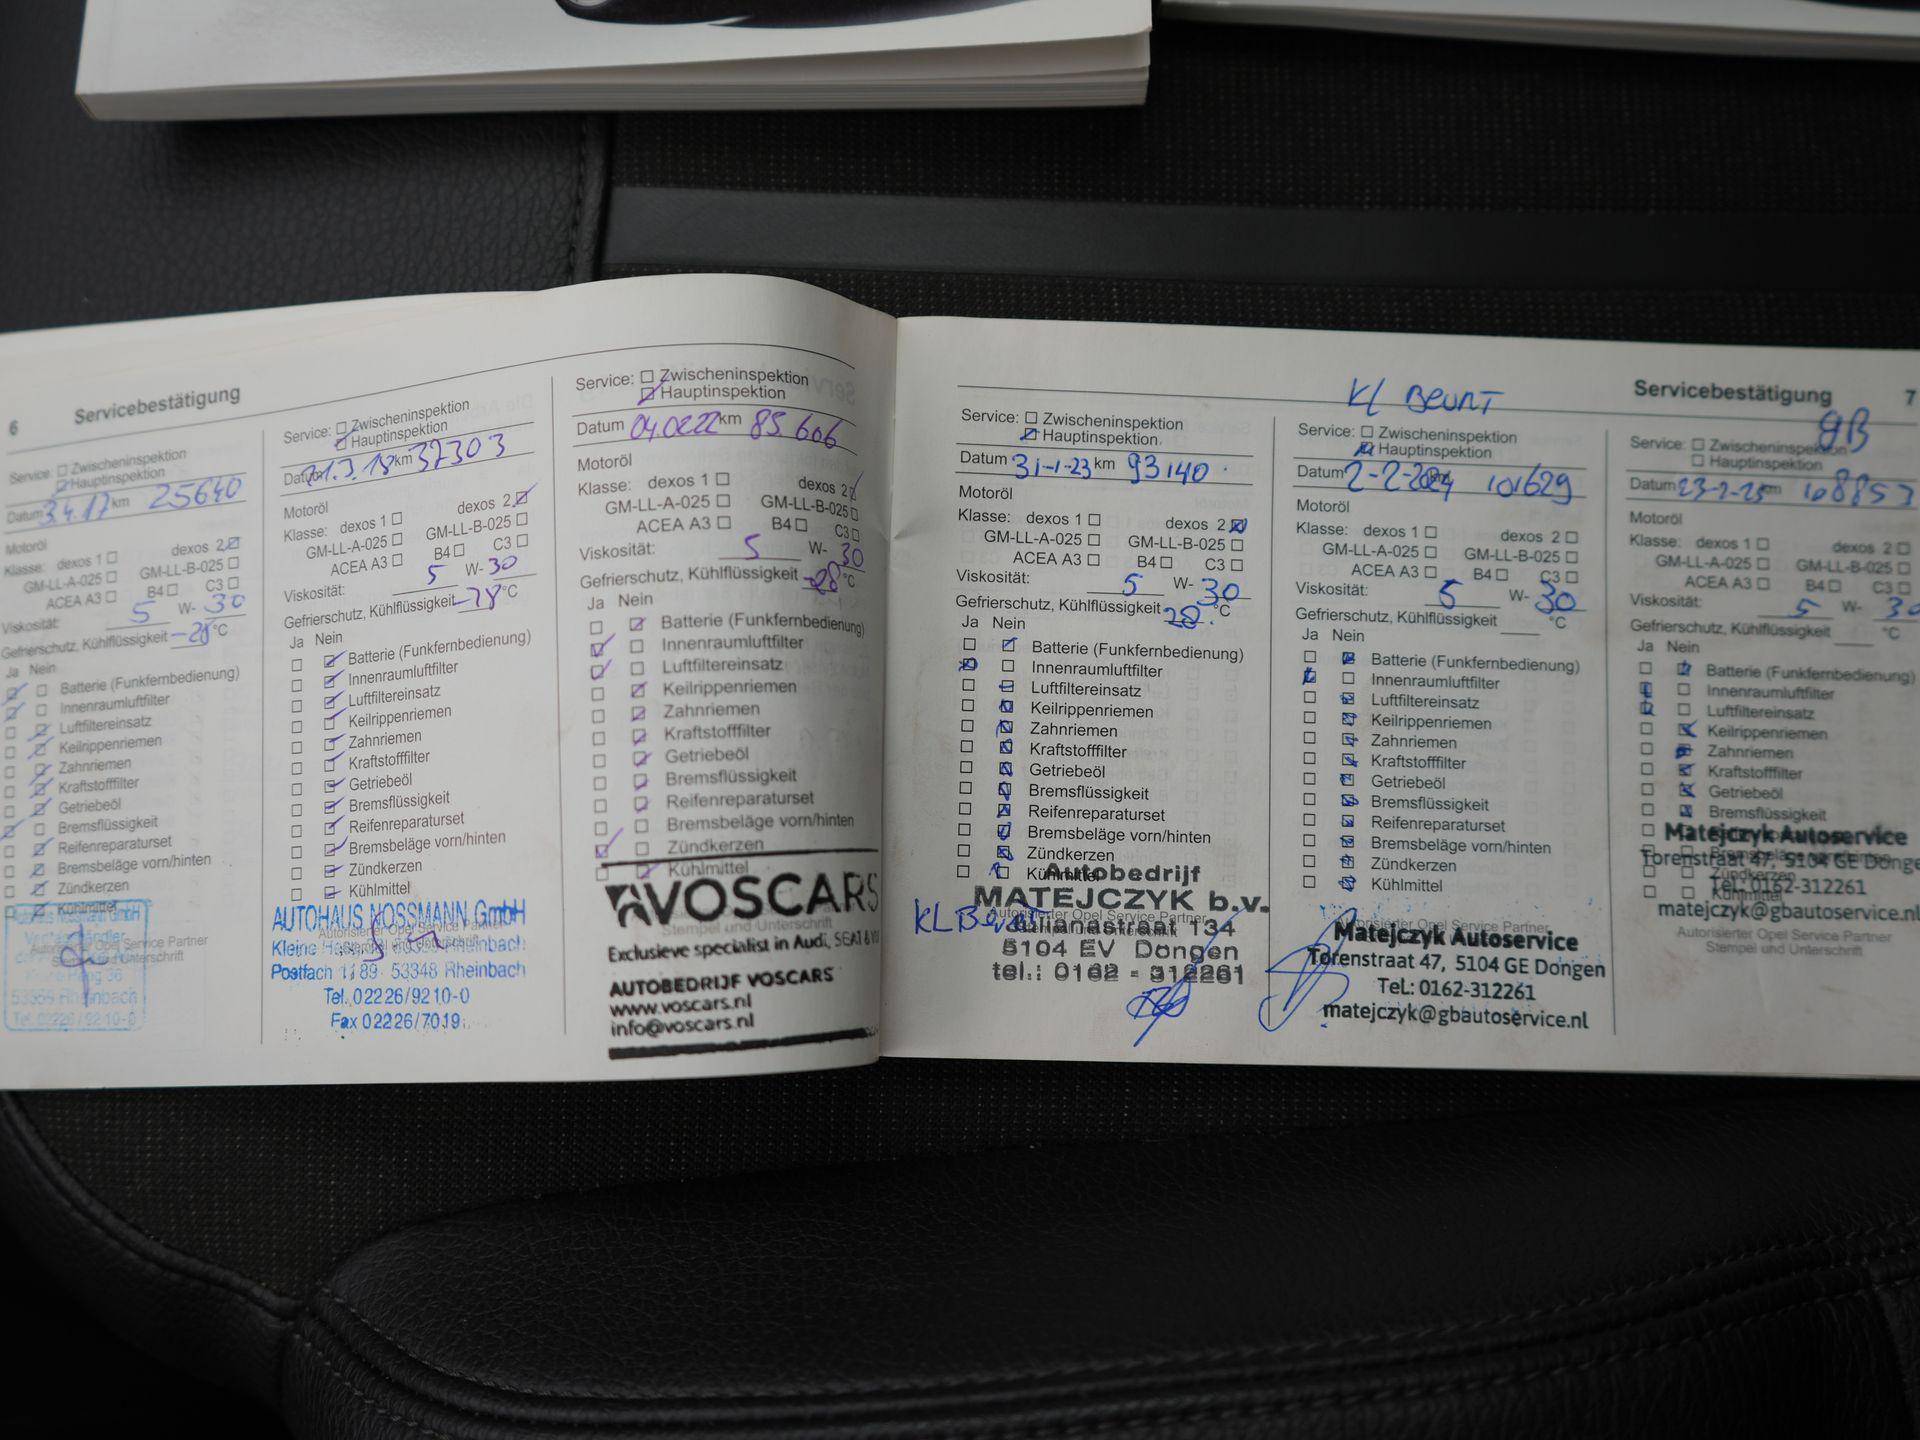 6 Servicebestätigung
Service: Zwischeninspektion
Hauptinspektion
Datum 3.4.17 km 25640
Motoröl
Klasse: dexos 1 dexos 2
GM-LL-A-025 GM-LL-B-025
ACEA A3 B4 C3
Viskosität: 5 W- 30
Gefrierschutz, Kühlflüssigkeit -28 °C
Ja Nein
Batterie (Funkfernbedienung)
Innenraumluftfilter
Luftfiltereinsatz
Keilrippenriemen
Zahnriemen
Kraftstofffilter
Getriebeöl
Bremsflüssigkeit
Reifenreparaturset
Bremsbeläge vorn/hinten
Zündkerzen
Kühlmittel
Autorisierter Opel Service Partner
Stempel und Unterschrift
53359 Rheinbach
Tel. 02226/92 10-0
Service: Zwischeninspektion
Hauptinspektion
Datum 21.3.18 km 37303
Motoröl
Klasse: dexos 1 dexos 2
GM-LL-A-025 GM-LL-B-025
ACEA A3 B4 C3
Viskosität: 5 W- 30
Gefrierschutz, Kühlflüssigkeit -28 °C
Ja Nein
Batterie (Funkfernbedienung)
Innenraumluftfilter
Luftfiltereinsatz
Keilrippenriemen
Zahnriemen
Kraftstofffilter
Getriebeöl
Bremsflüssigkeit
Reifenreparaturset
Bremsbeläge vorn/hinten
Zündkerzen
Kühlmittel
AUTOHAUS NOSSMANN GmbH
Autorisierter Opel Service Partner
Kleine Rheinbach
Postfach 1189 53348 Rheinbach
Tel. 02226/9210-0
Fax 02226/7019
Service: Zwischeninspektion
Hauptinspektion
Datum 04.0222 km 85 606
Motoröl
Klasse: dexos 1 dexos 2
GM-LL-A-025 GM-LL-B-025
ACEA A3 B4 C3
Viskosität: 5 W- 30
Gefrierschutz, Kühlflüssigkeit -28 °C
Ja Nein
Batterie (Funkfernbedienung)
Innenraumluftfilter
Luftfiltereinsatz
Keilrippenriemen
Zahnriemen
Kraftstofffilter
Getriebeöl
Bremsflüssigkeit
Reifenreparaturset
Bremsbeläge vorn/hinten
Zündkerzen
Kühlmittel
VOSCARS
Stempel und Unterschrift
Exclusieve specialist in Audi, SEAT &
AUTOBEDRIJF VOSCARS
www.voscars.nl
info@voscars.nl
Servicebestätigung 7
Service: Zwischeninspektion
Hauptinspektion
Datum 31-1-23 km 93140
Motoröl
Klasse: dexos 1 dexos 2
GM-LL-A-025 GM-LL-B-025
ACEA A3 B4 C3
Viskosität: 5 W- 30
Gefrierschutz, Kühlflüssigkeit 28. °C
Ja Nein
Batterie (Funkfernbedienung)
Innenraumluftfilter
Luftfiltereinsatz
Keilrippenriemen
Zahnriemen
Kraftstofffilter
Getriebeöl
Bremsflüssigkeit
Reifenreparaturset
Bremsbeläge vorn/hinten
Zündkerzen
Kühlmittel
Autobedrijf
MATEJCZYK b.v.
Autorisierter Opel Service Partner
KL Beurt Julianastraat 134
5104 EV Dongen
tel.: 0162 - 312261
Kl BEURT
Service: Zwischeninspektion
Hauptinspektion
Datum 2-2-2024 km 101629
Motoröl
Klasse: dexos 1 dexos 2
GM-LL-A-025 GM-LL-B-025
ACEA A3 B4 C3
Viskosität: 5 W- 30
Gefrierschutz, Kühlflüssigkeit °C
Ja Nein
Batterie (Funkfernbedienung)
Innenraumluftfilter
Luftfiltereinsatz
Keilrippenriemen
Zahnriemen
Kraftstofffilter
Getriebeöl
Bremsflüssigkeit
Reifenreparaturset
Bremsbeläge vorn/hinten
Zündkerzen
Kühlmittel
Autorisierter Opel Service Partner
Matejczyk Autoservice
Torenstraat 47, 5104 GE Dongen
Tel.: 0162-312261
matejczyk@gbautoservice.nl
gB
Service: Zwischeninspektion
Hauptinspektion
Datum 23-2-25 km 108853
Motoröl
Klasse: dexos 1 dexos 2
GM-LL-A-025 GM-LL-B-025
ACEA A3 B4 C3
Viskosität: 5 W- 30
Gefrierschutz, Kühlflüssigkeit °C
Ja Nein
Batterie (Funkfernbedienung)
Innenraumluftfilter
Luftfiltereinsatz
Keilrippenriemen
Zahnriemen
Kraftstofffilter
Getriebeöl
Bremsflüssigkeit
Matejczyk Autoservice
Torenstraat 47, 5104 GE Dongen
Zündkerzen
Tel.: 0162-312261
Kühlmittel
matejczyk@gbautoservice.nl
Autorisierter Opel Service Partner
Stempel und Unterschrift